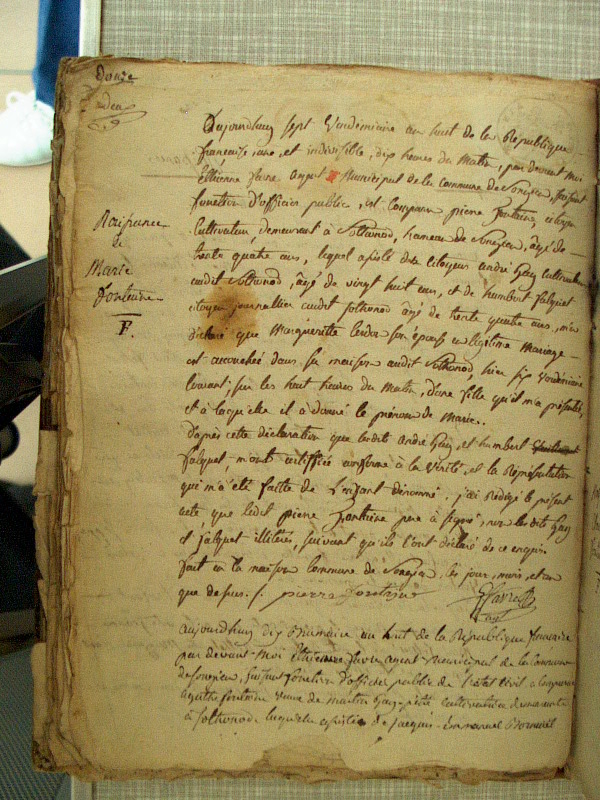 Douze
Naissance
de
Marie
Fontaine
F.
Aujourdhuy sept Vendemiaire an huit de la République
française, une, et indivisible, dix heures du matin, par devant moi
Ettienne favre agent Municipal de la commune de Songieu, faisant
fonction d'officier public, est comparu pierre fontaine, citoyen
cultivateur, demeurant à Sothonod, hameau de Songieu, âgé de
trente quatre ans, lequel assisté des citoyens andré Guy cultivateur
audit Sothonod, âgé de vingt huit ans, et de humbert falquet
citoyen journallier audit sothonod âgé de trente quatre ans, m'a
déclaré que Margueritte son épouse en légitime Mariage
est accouchée dans sa maison audit Sothonod, hier six Vendémiaire
courant, sur les huit heures du Matin, d'une fille qu'il m'a présentée,
et à laquelle il a donné le prénom de Marie.
D'après cette déclaration que lesdits andré Guy, et humbert
falquet, m'ont certiffiée conforme à la Vérité, et la Représentation
qui m'a été faitte de l'enfant dénommé, j'ai Rédigé le présent
acte que ledit pierre fontaine père a signé, non lesdits Guy
et falquet illiterés, suivant qu'ils l'ont déclaré de ce enquis
fait en la maison commune de Songieu, les jour, mois, et an
que dessus. pierre fontaine favre
agt
aujourdhuy dix brumaire an huit de la République francaise
par devant Moi Ettienne favre agent Municipal de la Commune
de songieu, faisant fonction d'officier public de l'état Civil a Comparu
agathe veuve de martin Guy cultivatrice demeurante
à sothonod laquelle assistée de jacques Emmanuel